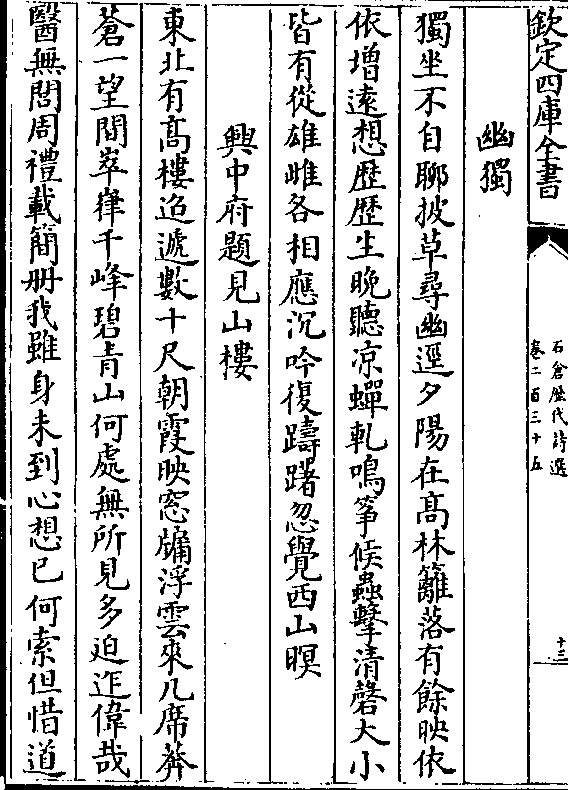 欽定四庫全書
石倉歴代詩選
卷二百三十五
十三
幽獨
獨坐不自聊披草尋幽逕夕陽在髙林籬落有餘映依
依增遠想歴歴生晚聽凉蟬軋鳴筝候蟲擊清磬大小
皆有從雄雌各相應沉吟復躊躇忽覺西山暝
興中府題見山樓
東北有髙樓迢遞數十尺朝霞映窓牖浮雲來几席莽
蒼一望間崒嵂千峰碧青山何處無所見多迫迮偉哉
醫無閭周禮載簡册我雖身未到心想已何索但惜道